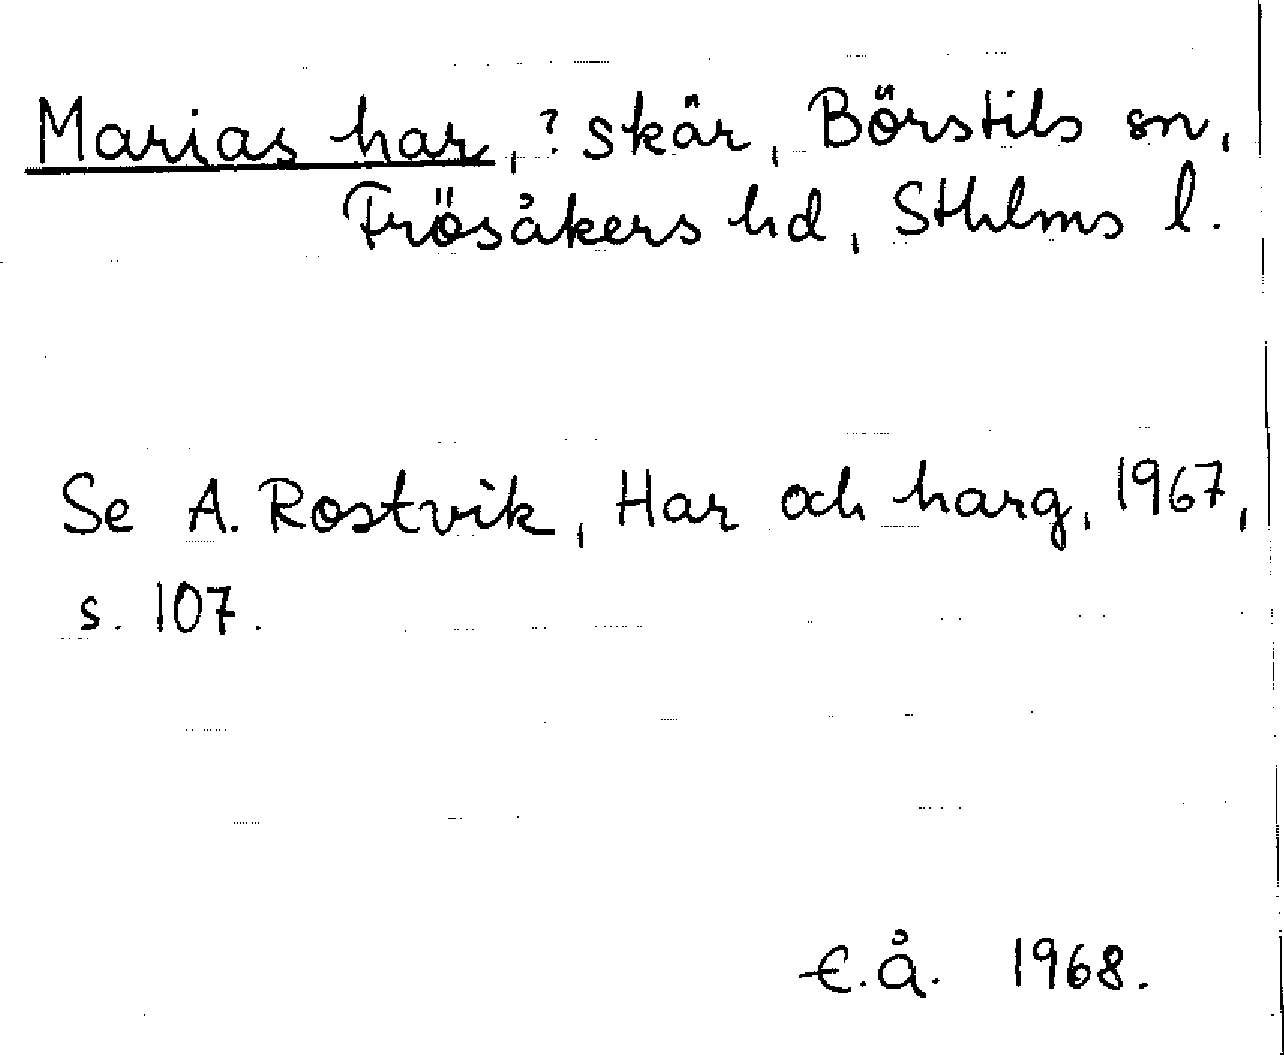 Marias har, ? skär, Börstils sn,
Frösåkers hd, Sthlms l.
Se A. Rostvik, Har och harg, 1967,
s. 107.
E.Å. 1968.